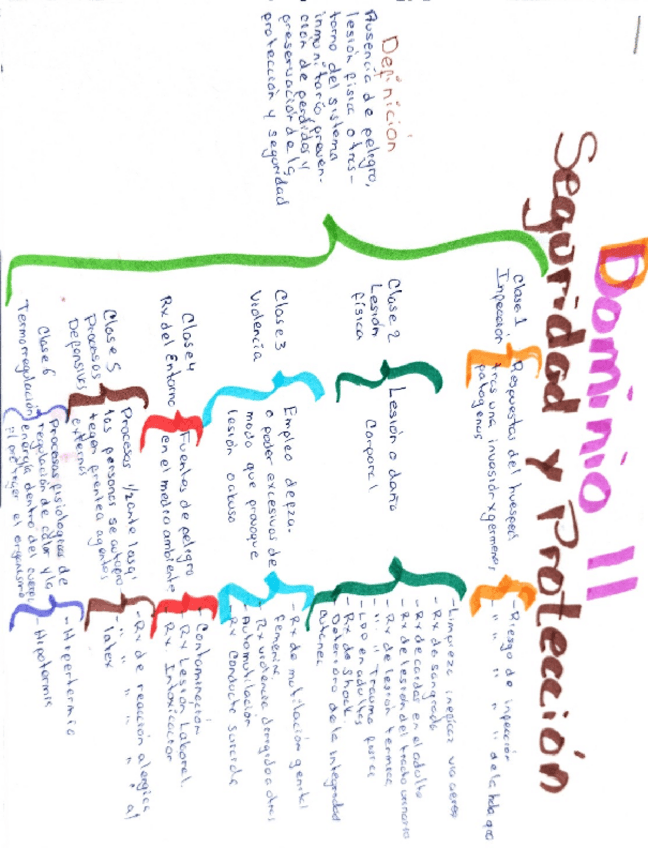 Dominio 11
Seguridad y Protección
Definición
Ausencia de peligro,
lesión física o tras-
torno del sistema
inmunitario, preven-
ción de perdidas y
preservación de la
protección y seguridad
Clase 1
Infección
Respuestas del huesped
tras una invasión x germenes
patogenos
-Riesgo de infección
- " " " " de la hda qco
Clase 2
Lesión
física
Lesión o daño
Corporal
-Limpieza ineficaz vía aerea
-Rx de sangrado
-Rx de caidas en el adulto
-Rx de lesión del tracto urinario
-Rx de lesión termica
- " " Trauma fisico
-LPP en adultos
-Rx de Shock.
Deterioro de la integridad
cutanea
Clase 3
Violencia
Empleo de fza.
o poder excesivos de
modo que provoque
lesión o abuso
-Rx de mutilación genital
femenina.
-Rx violencia dirigida a otros
-Automutilación
-Rx Conducta suicida
Clase 4
Rx del Entorno
Fuentes de peligro
en el medio ambiente
-Contaminación
-Rx Lesión Laboral.
-Rx Intoxicación
Clase 5
Procesos
Defensivos
Procesos 1/2ante las q'
las personas se autopro
tegen frente a agentes
externos
-Rx de reacción alergica
- " " " " " al
latex
Clase 6
Termorregulación
Procesos fisiologicos de
regulación de calor y la
energía dentro del cuerpo
proteger el organismo
-Hipertermia
-Hipotermia